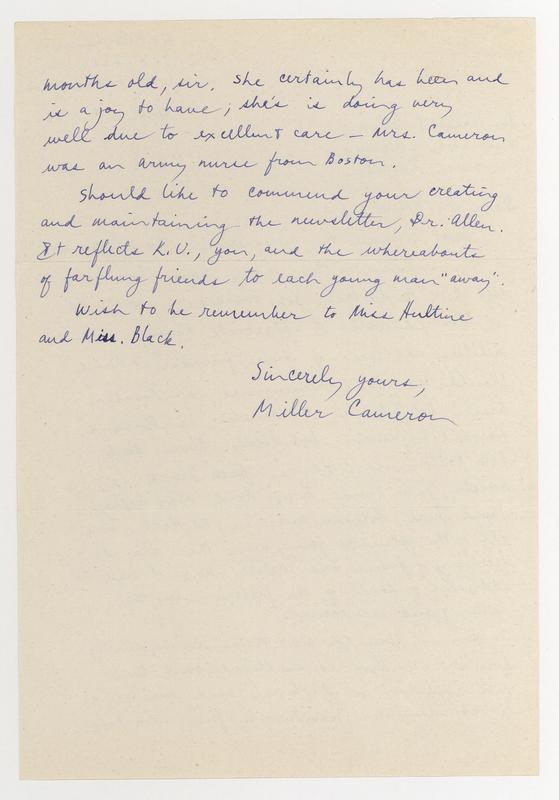 months old, sir. She certainly has been and
is a joy to have; she's is doing very
well due to excellent care – Mrs. Cameron
was an army nurse from Boston.
Should like to commend your creating
and maintaining the newsletter, Dr. Allen.
It reflects K.U., you, and the whereabouts
of farflung friends to each young man "away".
Wish to be remember to Miss Hultine
and Miss. Black.
Sincerely yours,
Miller Cameron